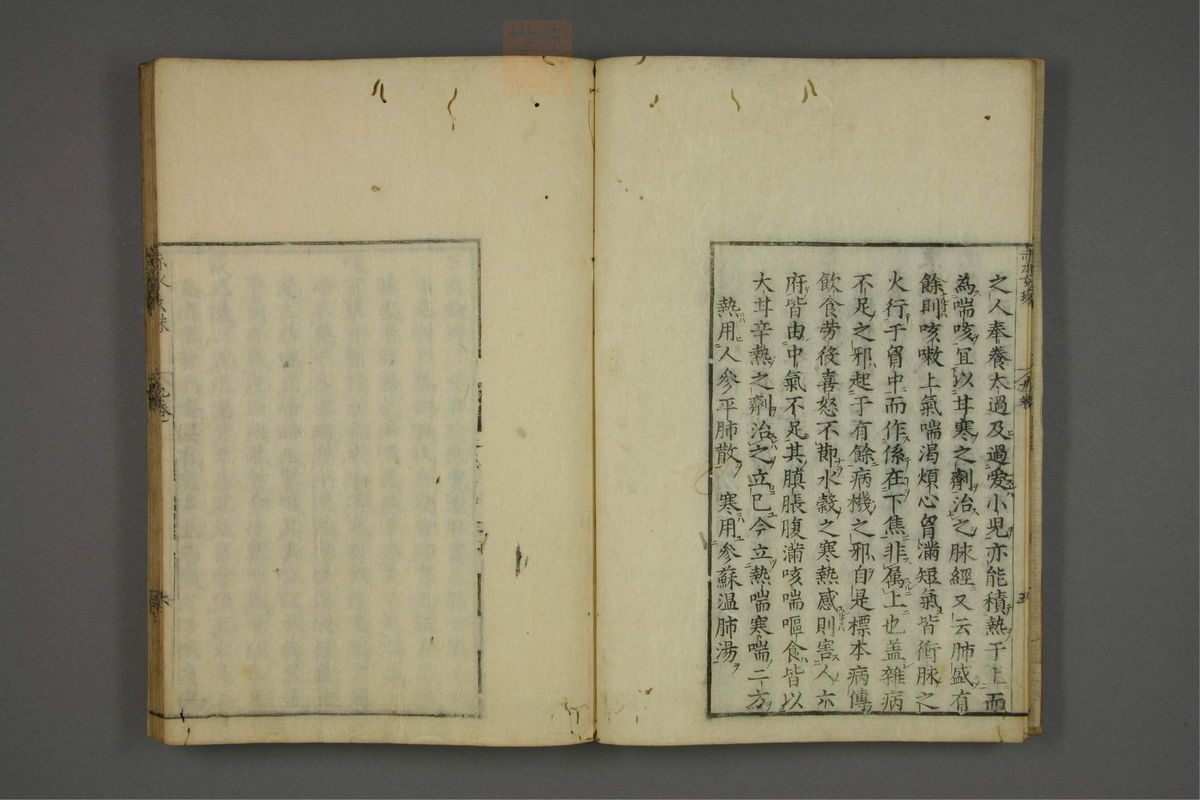 之人奉養太過及過愛小児亦能積熱于上而
為喘咳宜以甘寒之劑治之脉經又云肺盛有
餘則咳嗽上氣喘渴煩心胷滿短氣皆衝脉之
火行于胷中而作係在下焦非属上也盖雜病
不足之邪起于有餘病機之邪自是標本病傳
飲食劳役喜怒不節水穀之寒熱感則害人六
府皆由中氣不足其䐜脹腹滿咳喘嘔食皆以
大甘辛熱之劑治之立已今立熱喘寒喘二方
熱用人参平肺散　寒用参蘇温肺湯